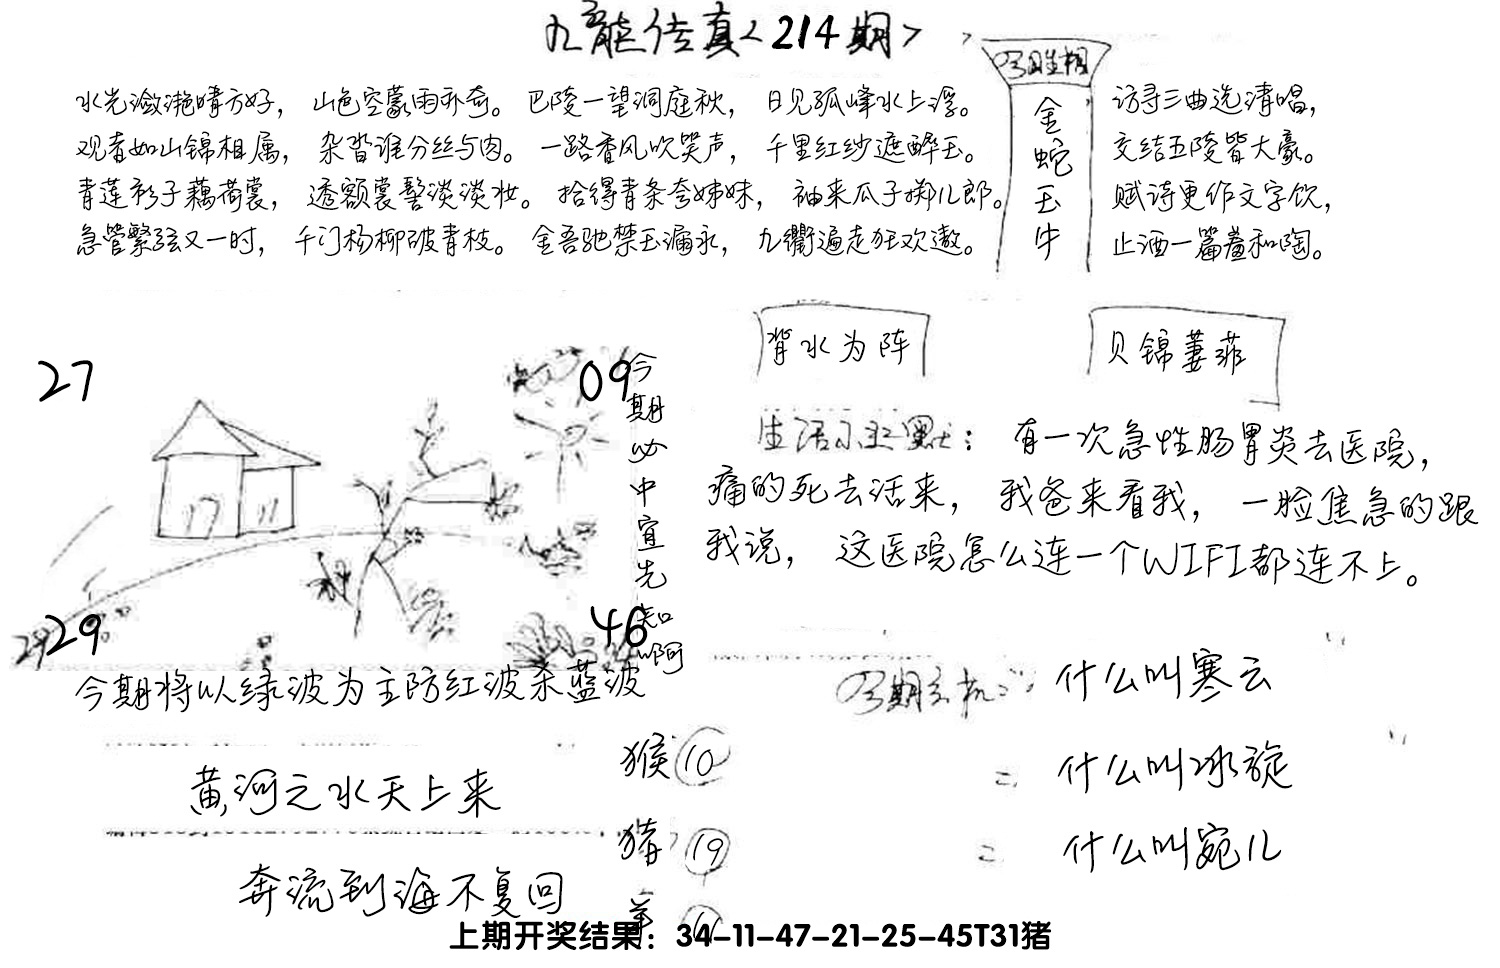 九龍传真<214期>
水光潋滟晴方好，山色空蒙雨亦奇。巴陵一望洞庭秋，日见孤峰水上浮。
观者如山锦相属，杂沓谁分丝与肉。一路香风吹笑声，千里红纱遮醉玉。
青莲衫子藕荷裳，透额裳髻淡淡妆。拾得青条夸姊妹，袖来瓜子掷儿郎。
急管繁弦又一时，千门杨柳破青枝。金吾弛禁玉漏永，九衢遍走狂欢遨。
今期生相
金蛇玉牛
访寻三曲选清唱，
交结五陵皆大豪。
赋诗更作文字饮，
止酒一篇羞和陶。
背水为阵
贝锦萋菲
27
09
29
29
46
今期必中宜先知啊
今期将以绿波为主防红波杀蓝波
生活小幽默：有一次急性肠胃炎去医院，
痛的死去活来，我爸来看我，一脸焦急的跟
我说，这医院怎么连一个WIFI都连不上。
今期玄机：什么叫寒云
什么叫冰旋
什么叫宛儿
黄河之水天上来
奔流到海不复回
猴10
猪19
羊
上期开奖结果：34-11-47-21-25-45T31猪